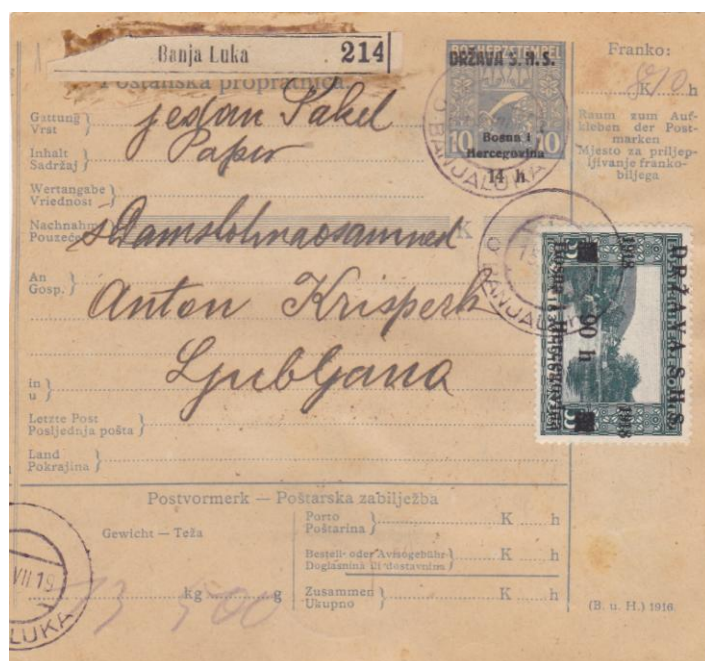 Banja Luka 214
Poštanska propratnica.
BOS. HERZ. STEMPEL
DRŽAVA S. H. S.
10 10
Bosna i
Hercegovina
14 h
BANJALUKA
Franko:
K h
Raum zum Auf-
kleben der Post-
marken
Mjesto za priljep-
ljivanje franko-
biljega
Gattung
Vrst
jedan Sakel
Inhalt
Sadržaj
Papir
Wertangabe
Vriednost
Nachnahme
Pouzeće
K
An
Gosp.
Anton Krisperh
Ljubljana
in
u
Letzte Post
Posljednja pošta
Land
Pokrajina
BANJALUKA
DRŽAVA S.H.S.
1918 1918
90 h
Bosna i Hercegovina
Postvormerk — Poštarska zabilježba
Gewicht — Teža
Porto
Poštarina
K h
Bestell- oder Avisogebühr
Doglasnina ili dostavnina
K h
kg g
Zusammen
Ukupno
K h
(B. u. H.) 1916
VII 19
LUKA